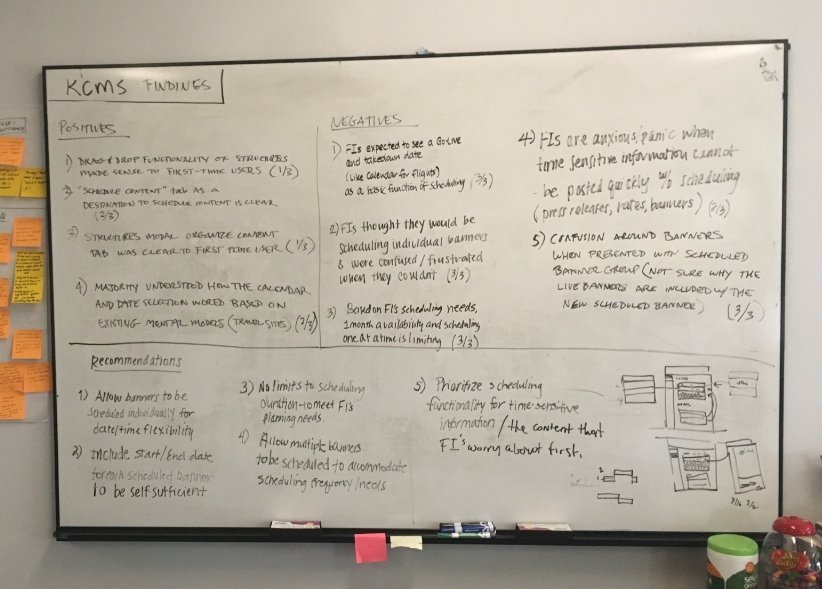 KCMS FINDINGS
POSITIVES
1) DRAG & DROP FUNCTIONALITY OF STRUCTURES
MADE SENSE TO FIRST-TIME USERS (1/3)
2) "SCHEDULE CONTENT" TAB AS A
DESTINATION TO SCHEDULE CONTENT IS CLEAR
(2/3)
3) STRUCTURES MODAL ORGANIZE CONTENT
TAB WAS CLEAR TO FIRST TIME USER (1/3)
4) MAJORITY UNDERSTOOD HOW THE CALENDAR
AND DATE SELECTION WORED BASED ON
EXISTING MENTAL MODELS (TRAVEL SITES) (2/3)
NEGATIVES
1) FIs expected to see a Go-Live
and takedown date
(Like Calendar for flights)
as a basic function of scheduling (3/3)
2) FIs thought they would be
scheduling individual banners
& were confused/frustrated
when they couldnt (3/3)
3) Based on FI's scheduling needs,
1 month availability and scheduling
one at a time is limiting (3/3)
4) FIs are anxious/panic when
time sensitive information cannot
be posted quickly w/o scheduling
(press releases, rates, banners) (2/3)
5) CONFUSION AROUND BANNERS
WHEN PRESENTED WITH SCHEDULED
BANNER GROUP (NOT SURE WHY THE
LIVE BANNERS ARE INCLUDED W/ THE
NEW SCHEDULED BANNER) (3/3)
Recommendations
1) Allow banners to be
scheduled individually for
date/time flexibility
2) Include start/end date
for each scheduled banner
to be self sufficient
3) No limits to scheduling
duration to meet FI's
planning needs.
4) Allow multiple banners
to be scheduled to accommodate
scheduling frequency/needs
5) Prioritize scheduling
functionality for time-sensitive
information/the content that
FI's worry about first.
Jelly
Belly